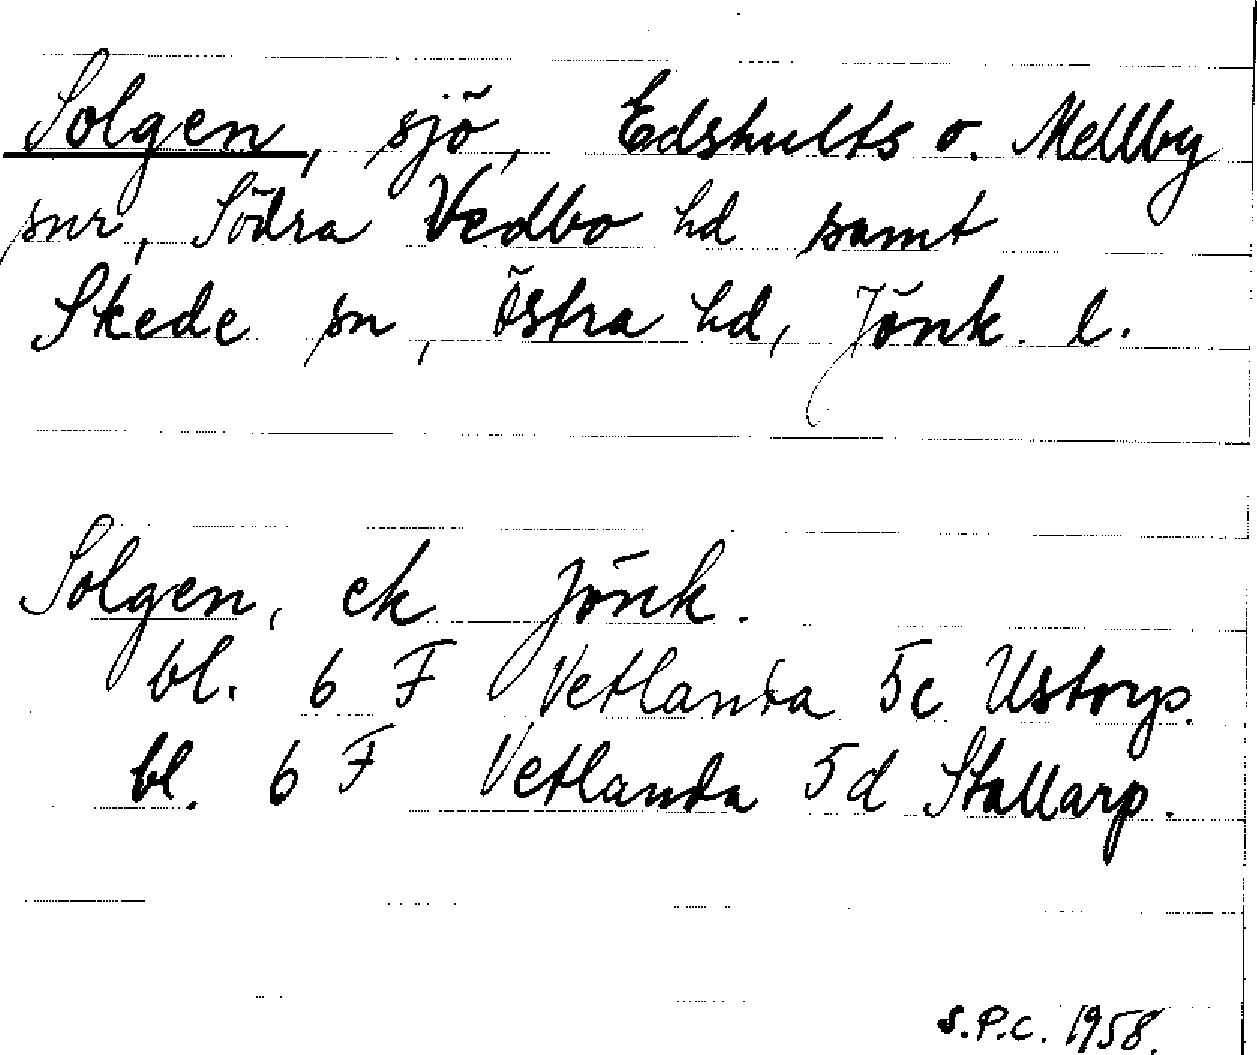 Solgen, sjö, Edshults o. Mellby
snr, Södra Vedbo hd samt
Skede sn, Östra hd, Jönk. l.
Solgen, ek Jönk.
bl. 6 F Vetlanda 5c Ustorp.
bl. 6 F Vetlanda 5d Stallarp.
S.P.C. 1958.